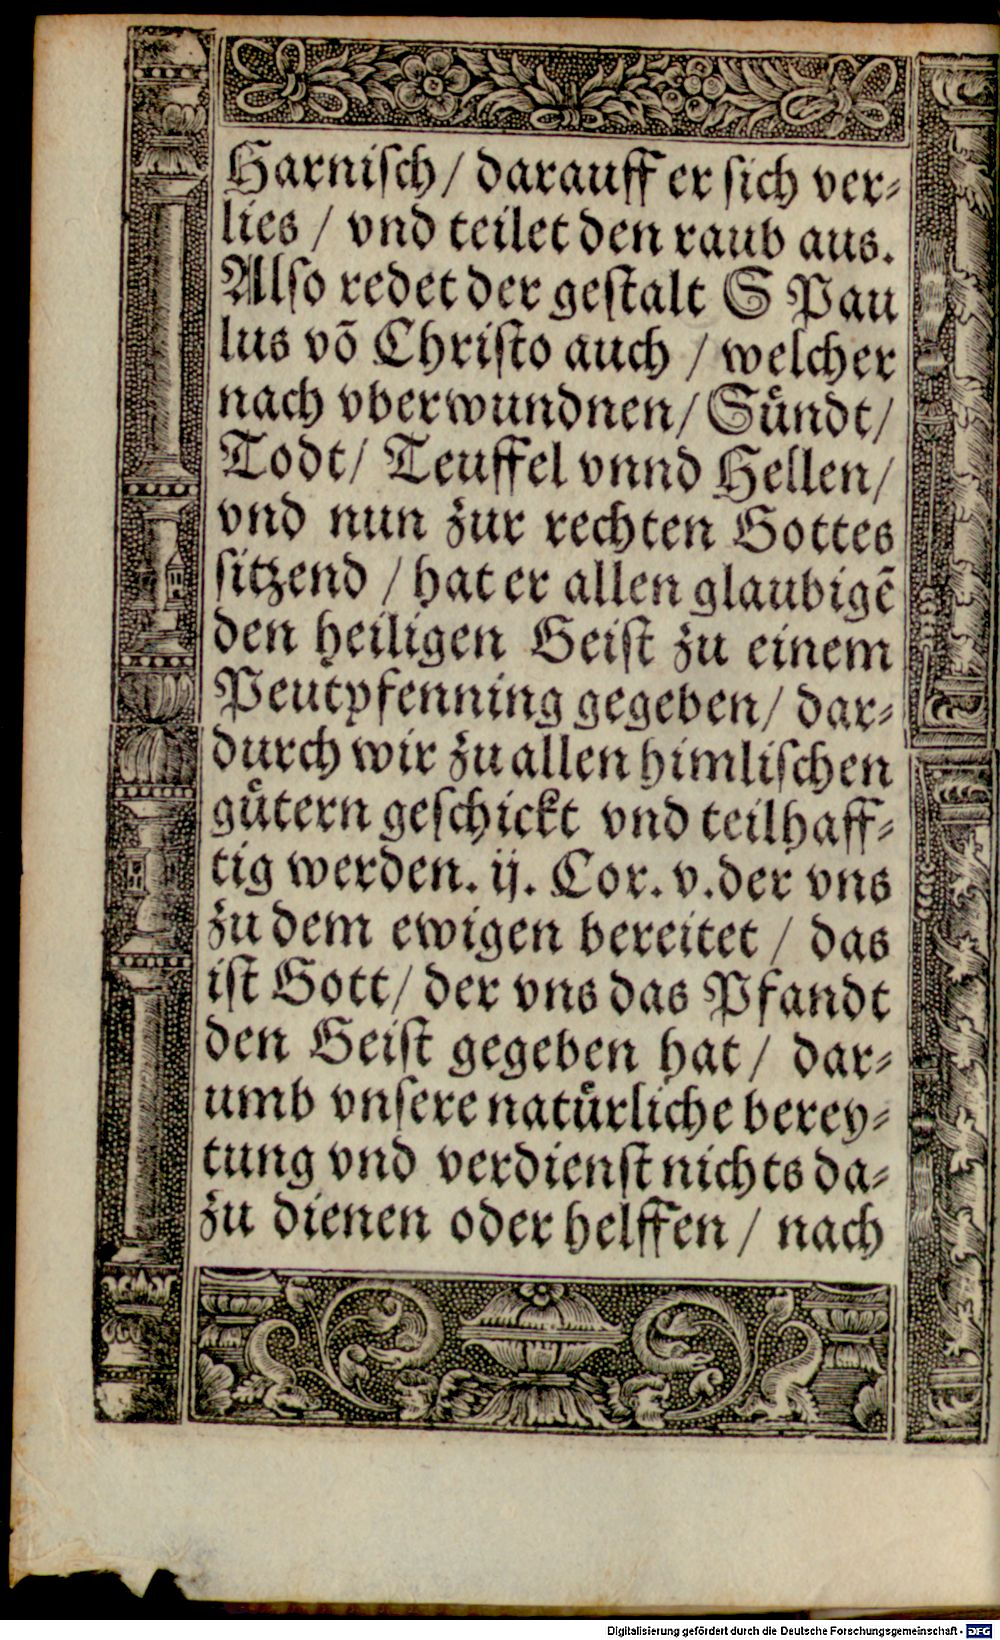 Harnisch / darauff er sich ver-
lies / vnd teilet den raub aus.
Also redet der gestalt S Pau
lus võ Christo auch / welcher
nach vberwundnen / Sündt /
Todt / Teuffel vnnd Hellen /
vnd nun zur rechten Gottes
sitzend / hat er allen glaubigẽ
den heiligen Geist zu einem
Peutpfenning gegeben / dar-
durch wir zu allen himlischen
gütern geschickt vnd teilhaff-
tig werden. ij. Cor. v. der vns
zu dem ewigen bereitet / das
ist Gott / der vns das Pfandt
den Geist gegeben hat / dar-
umb vnsere natürliche berey-
tung vnd verdienst nichts da-
zu dienen oder helffen / nach
Digitalisierung gefördert durch die Deutsche Forschungsgemeinschaft - DFG